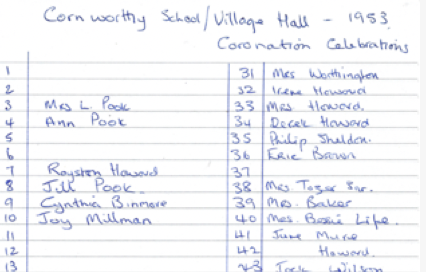 Cornworthy School/Village Hall - 1953
Coronation Celebrations
1
2
3 Mrs L. Pook
4 Ann Pook
5
6
7 Royston Howard
8 Jill Pook.
9 Cynthia Binmore
10 Joy Millman
11
12
13
31 Mrs Worthington
32 Irene Howard
33 Mrs Howard.
34 Derek Howard
35 Philip Sheldon.
36 Eric Brown
37
38 Mrs. Tozer Snr.
39 Mrs. Baker
40 Mrs. Bessie Lipe.
41 June
42 Howard.
43 Jack Wilson